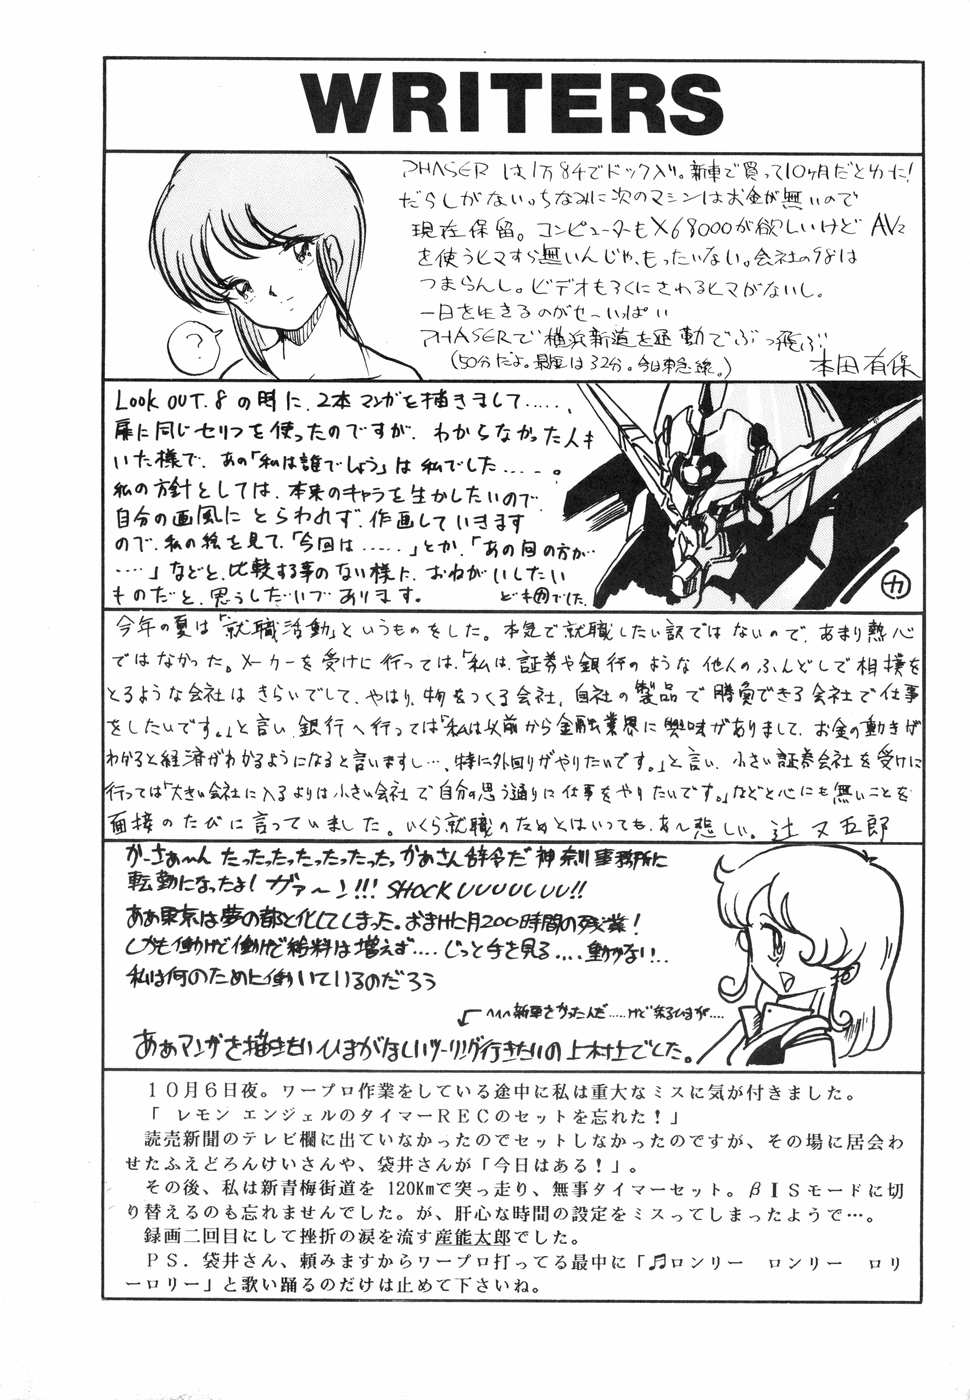 WRITERS
PHASERは1万84でドック入り。新車で買って10ヶ月だとゆーに!
だらしがない。ちなみに次のマシンはお金が無いので
現在保留。コンピューターもX68000が欲しいけど AV2
を使うヒマすら無いんじゃ、もったいない。会社の98は
つまらんし。ビデオもろくにさわるヒマがないし。
一日を生きるのがせーいっぱい
PHASERで横浜新道を通勤でぶっ飛ぶ
(50分だよ。最短は32分。今日東急線。)
本田有保
?
Look OUT.8の時に、2本マンガを描きまして.....、
扉に同じセリフを使ったのですが、わからなかった人も
いた様で、あの「私は誰でしょう」は私でした.....。
私の方針としては、本来のキャラを生かしたいので、
自分の画風にとらわれず、作画していきます
ので、私の絵を見て、「今回は.....」とか、「あの回の方が..
....」などと、比較する事のない様に、おねがいしたい
ものだと、思うしだいであります。
でした。
カ
今年の夏は「就職活動」というものをした。本気で就職したい訳ではないので、あまり熱心
ではなかった。メーカーを受けに行っては、「私は、証券や銀行のような他人のふんどしで相撲を
とるような会社はきらいでして、やはり、物をつくる会社、自社の製品で勝負できる会社で仕事
をしたいです。」と言い、銀行へ行っては「私は以前から金融業界に興味がありまして、お金の動きが
わかると経済がわかるようになると言いますし…、特に外回りがやりたいです。」と言い、小さい証券会社を受けに
行っては「大きい会社に入るよりは小さい会社で自分の思う通りに仕事をやりたいです。」などと心にも無いことを
面接のたびに言っていました。いくら就職のためとはいっても、あ〜悲しい。辻又五郎
かーさぁーん たったったったったったっ、かあさん辞令だ 神奈川事務所に
転勤になったよ! ガァ〜ン!!! SHOCKUUUUUUU!!
ああ東京は夢の都と化してしまった。おまけに月200時間の残業!
しかも働けど働けど給料は増えず.... じっと手を見る.... 動かない...
私は何のために働いているのだろう
へへへ新車さかったんだ.....けど乗るひまが....
ああマンガを描きたいひまがほしいツーリング行きたいの上村上でした。
10月6日夜。ワープロ作業をしている途中に私は重大なミスに気が付きました。
「レモン エンジェルのタイマーRECのセットを忘れた!」
読売新聞のテレビ欄に出ていなかったのでセットしなかったのですが、その場に居会わ
せたふえどろんけいさんや、袋井さんが「今日はある!」。
その後、私は新青梅街道を 120Kmで突っ走り、無事タイマーセット。βISモードに切
り替えるのも忘れませんでした。が、肝心な時間の設定をミスってしまったようで…。
録画二回目にして挫折の涙を流す産能太郎でした。
PS.袋井さん、頼みますからワープロ打ってる最中に「♫ロンリー ロンリー ロリ
ーロリー」と歌い踊るのだけは止めて下さいね。